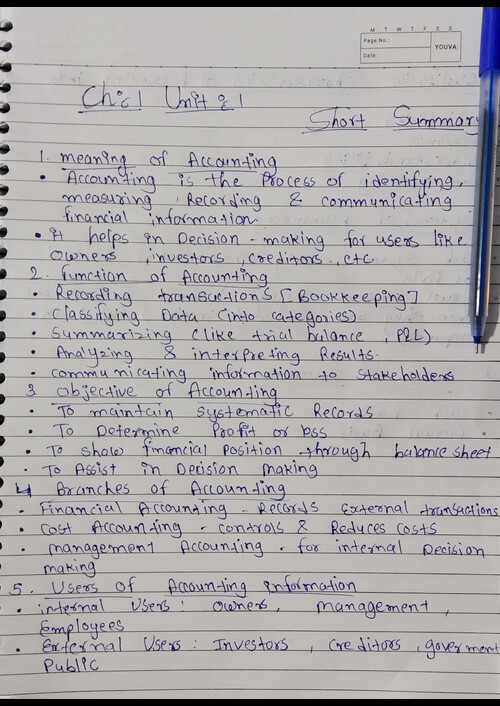 M T W T F S S
Page No.:
Date:
YOUVA
Ch:1 Unit:1
Short Summary
1. meaning of Accounting
• Accounting is the Process of identifying,
measuring, Recording & communicating
financial information
• it helps in Decision-making for users like
owners, investors, creditors, etc
2. Function of Accounting
• Recording transactions [Bookkeeping]
• Classifying Data (into categories)
• Summarizing (like trial balance, P&L)
• Analyzing & interpreting Results.
• communicating information to stakeholders
3. Objective of Accounting
• To maintain systematic Records
• To Determine Profit or loss
• To show financial Position through balance sheet
• To Assist in Decision making
4 Branches of Accounting
• Financial Accounting - Records External transactions
• Cost Accounting - controls & Reduces costs
• management Accounting - for internal Decision
making
5. Users of Accounting information
• internal Users: owners, management,
Employees
• External Users: Investors, creditors, goverment
Public